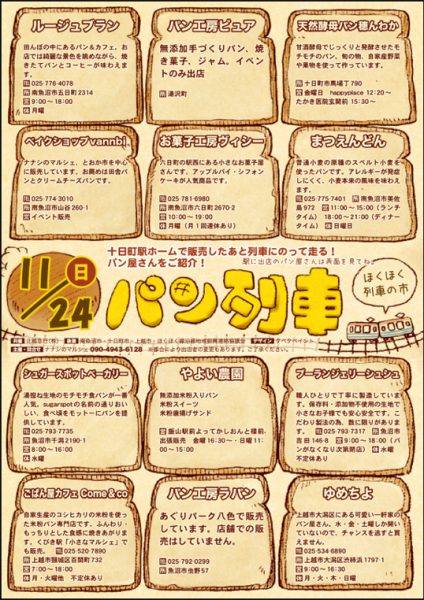 ルージュブラン
田んぼの中にあるパン&カフェ。お
店では綺麗な景色を眺めながら、焼
きたてパンとコーヒーが味わえま
す。
025-776-4078
南魚沼市五日町2314
9:00〜18:00
月曜
パン工房ピュア
無添加手づくりパン、焼
き菓子、ジャム。イベン
トのみ出店
湯沢町
天然酵母パン穂んわか
甘酒酵母でじっくりと発酵させたモ
チモチのパン、旬の物、自家産野菜
や果物を使って作っています。
十日町市馬場丁790
金曜日 happyplace 12:20〜
たかき医院玄関前 15:30〜
ベイクショップvannbi
ナナシのマルシェ、とおか市を中心
に販売しています。お薦めは田舎パ
ンとクリームチーズパンです。
025-774-3010
南魚沼市山谷260-1
イベント販売
お菓子工房ヴィシー
六日町の駅西にある小さなお菓子屋
さんです。アップルパイ・シフォン
ケーキが人気商品です。
025-781-6980
南魚沼市六日町2670-2
10:00〜19:00
月曜(月1回連休あり)
まつえんどん
普通小麦の原種のスペルト小麦を
使ったパンです。アレルギーが発症
しにくく、小麦本来の風味を味わえ
ます。
025-775-7401 南魚沼市美佐
島972 11:00〜15:00(ランチ
タイム) 18:00〜21:00(ディナー
タイム) 日曜日
十日町駅ホームで販売したあと列車にのって走る!
パン屋さんをご紹介!
駅に出店のパン屋さんは表面を見てね。
11/24
日
パン列車
ほくほく
列車の市
ナナシのマルシェ 090-4943-6128 ※都合により出店者の変更もあります。ご了承ください。
シュガースポットベーカリー
湯捏ね生地のモチモチ食パンが一番
人気。sugarspotの名前の通りおい
しい、食べ頃をモットーにパンを提
供しています。
025-793-7735
魚沼市干溝2190-1
8:00〜16:00
水曜
やよい農園
無添加米粉入りパン
米粉スイーツ
米粉唐揚げサンド
飯山駅前よってかしおんと様前
出張販売 金曜16:30〜・日曜11:
00〜15:00
ブーランジェリーシュシュ
職人ひとりで丁寧に製造しています。
保存料・添加物不使用の生地で
小さなお子様でも安心安全です。こ
だわり製法の為、数に限りがありま
す。 025-793-7317 魚沼市
吉田146-8 9:00〜18:00(パ
ンがなくなり次第閉店) 水曜
不定休あり
こぱん屋カフェ come&co
自家生産のコシヒカリの米粉を使
った米粉パン専門店です。ふんわり・
もっちりとした食感に焼きあがりま
す。くびき駅「小さなマルシェ」で
も販売。 025-520-7890
上越市頸城区百間町732
7:00〜18:00
月・火曜他 不定休あり
パン工房ラパン
あぐりパーク八色で販売
しています。店舗での販
売はしていません。
025-792-0299
魚沼市虫野57
ゆめちよ
上越市大潟区にある可愛い一軒家の
パン屋さん。水・金・土曜しか開い
ていないので、チャンスを逃すと買
えません。
025-534-6890
上越市大潟区渋柿浜1797-1
8:00〜16:30
月・火・木・日曜